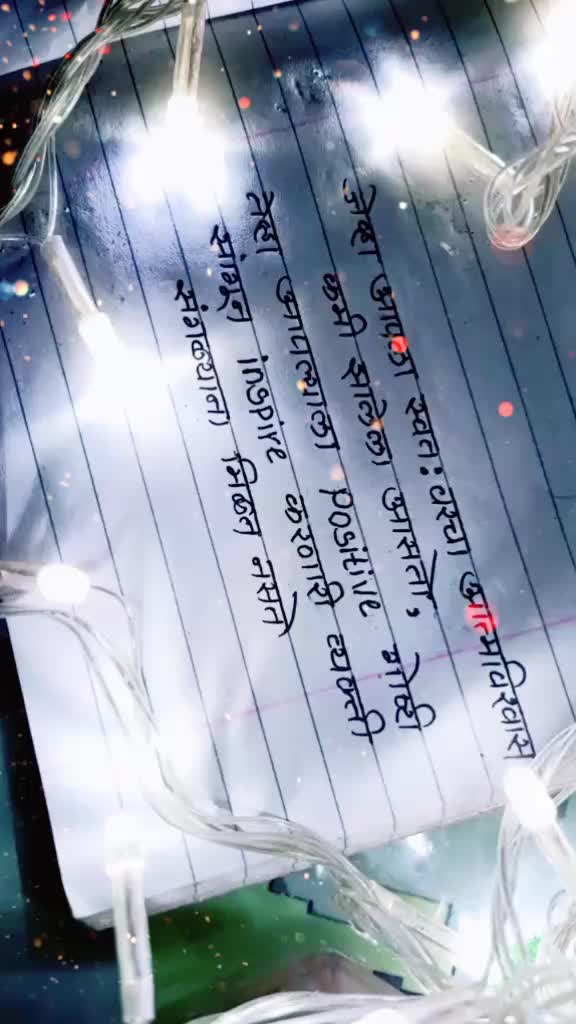 जेव्हा आपला स्वतः वरचा आत्मविश्वास
कमी झालेला आसतो, गोष्टी
तेव्हा आपल्याला positive व्यक्ती
सांगून inspire करणारी
सगळ्यांना मिळत नसते